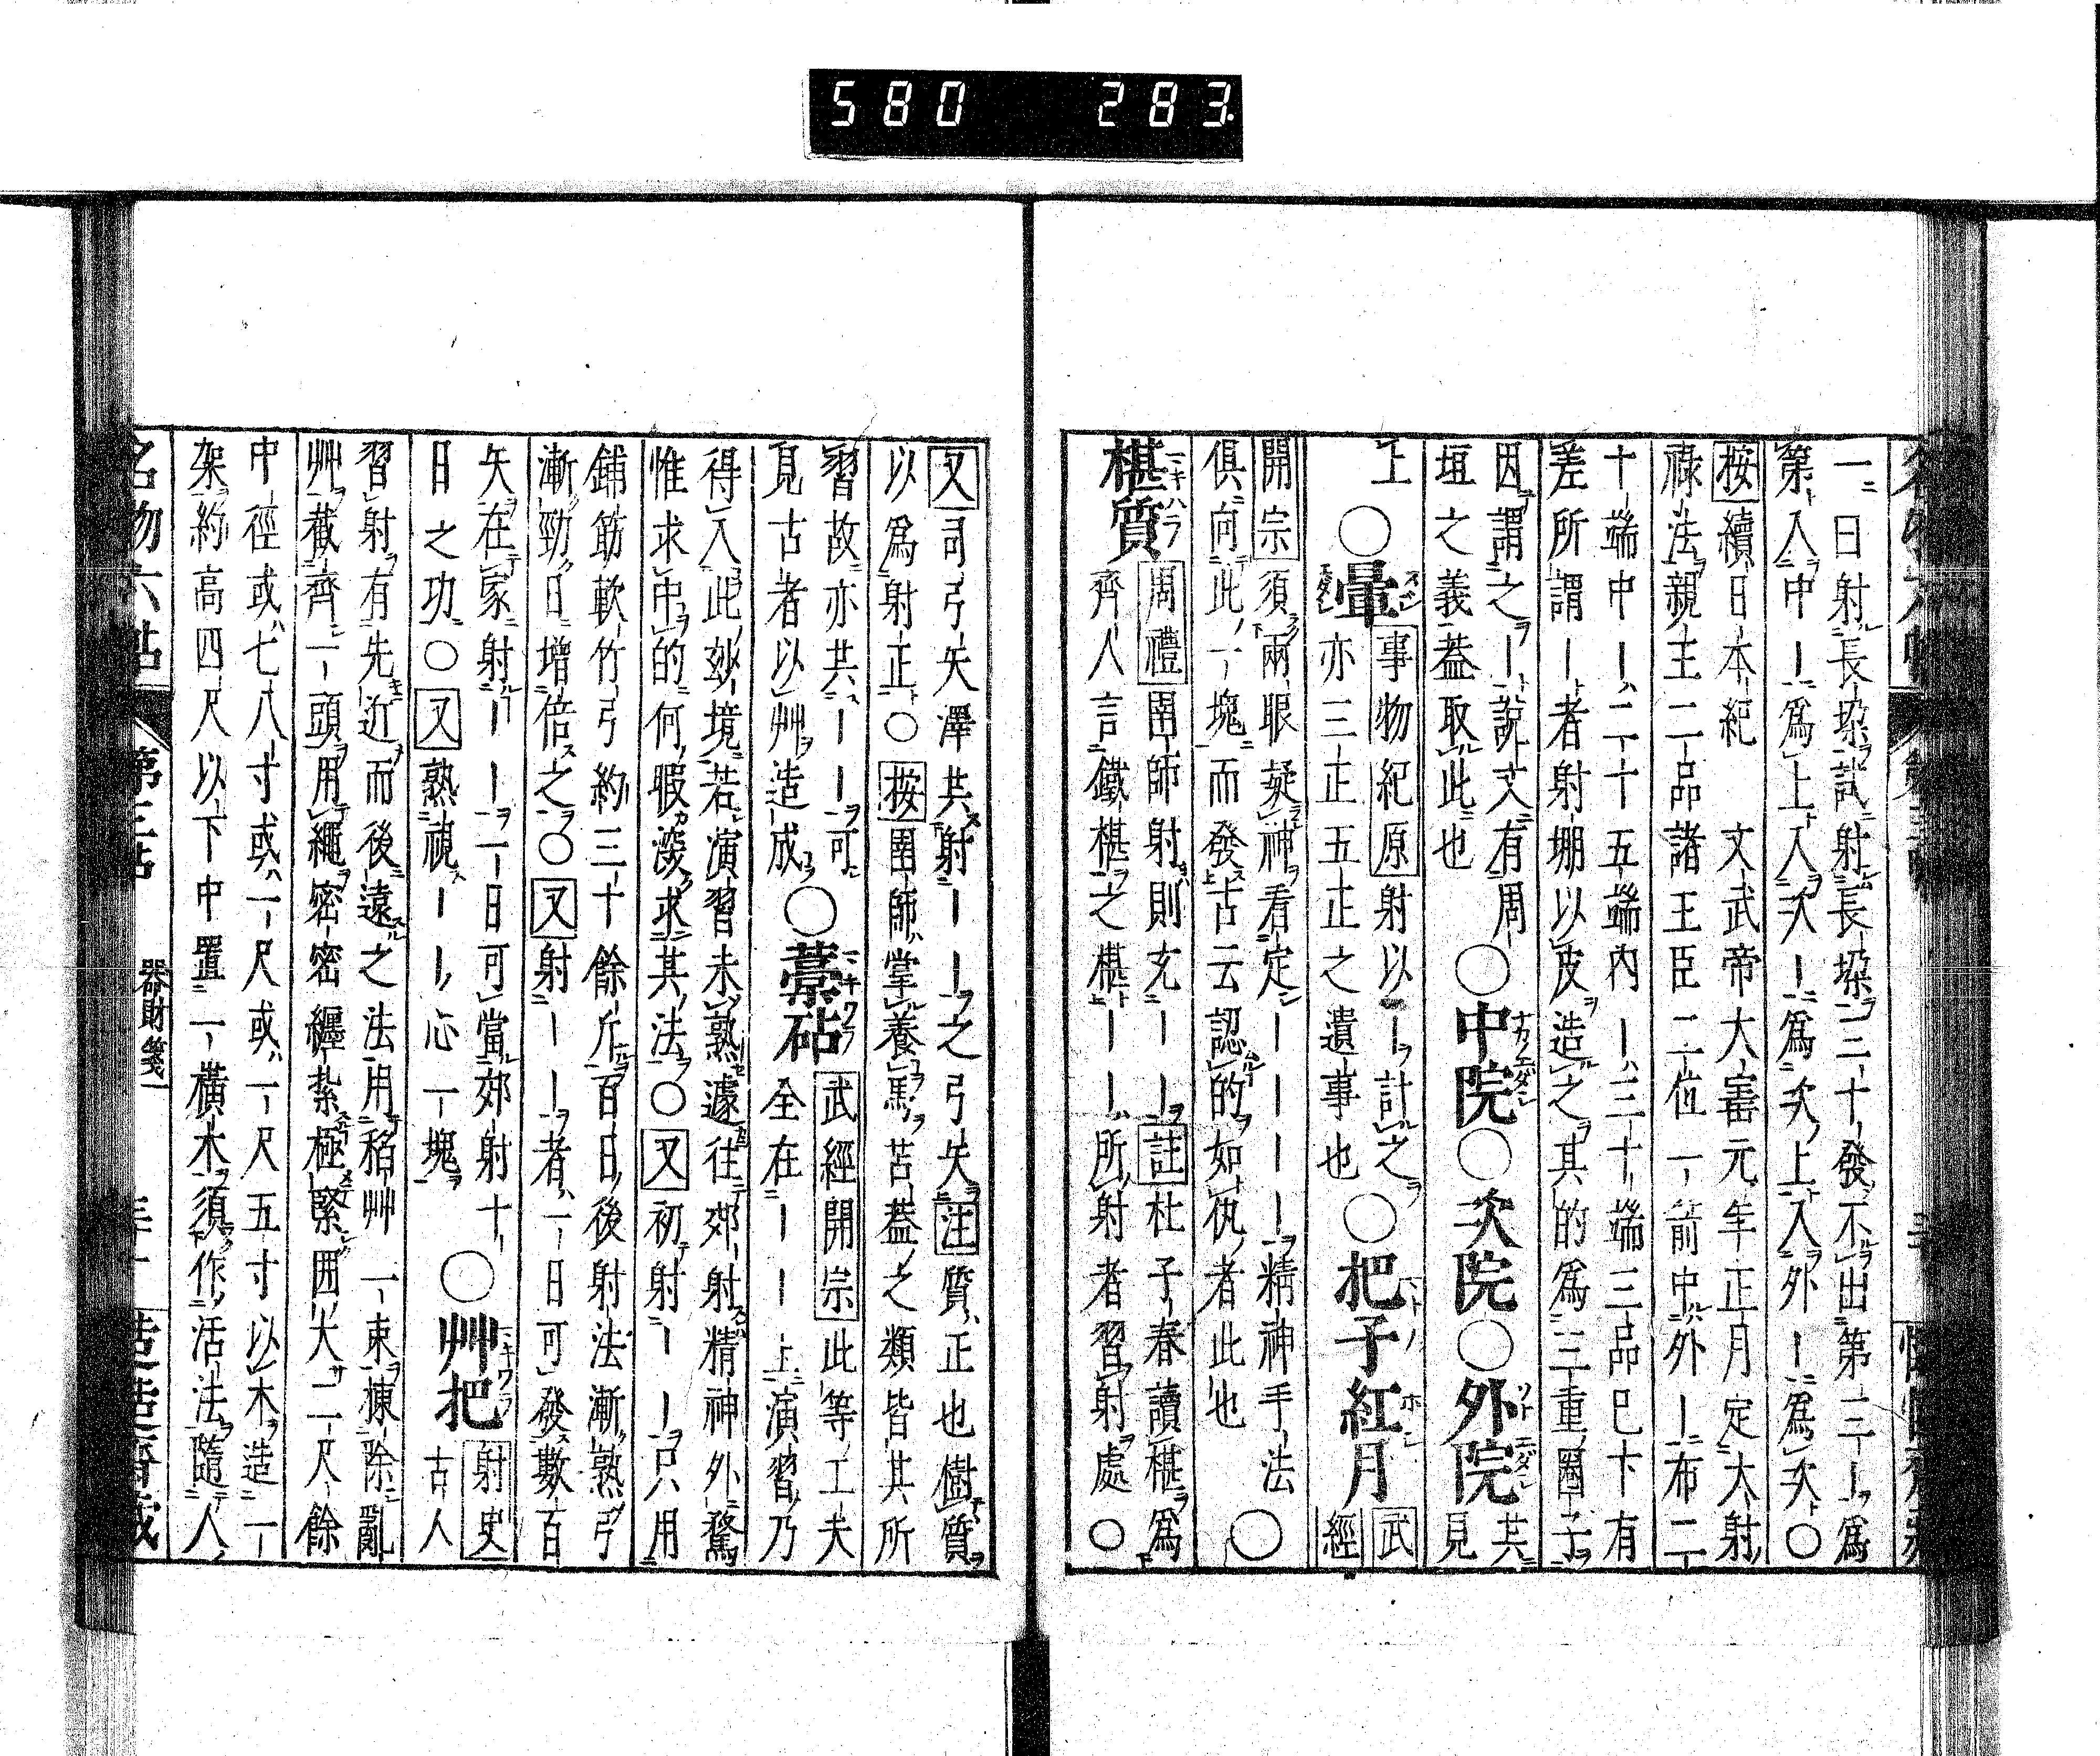 580 283.
一曰射長垜試射長垜三十發不出第三｜爲
第入中｜爲上入次｜爲次上入外｜爲次○
按續日本紀 文武帝大寶元年正月定大射
祿法親王二品諸王臣二位一箭中外｜布二
十端中｜二十五端内｜三十端三品已下有
差所謂｜者射堋以皮造之其的爲三重圈子
因謂之｜說文有周
垣之義蓋取此也
○中院○次院○外院
共見
上
○暈
事物紀原射以｜計之
亦三正五正之遺事也
○把子紅月
武經
開宗須兩眼凝神看定｜｜｜｜精神手法
俱向此一塊而發古云認的如仇者此也
○
椹質
周禮圉師射則充｜｜註杜子春讀椹爲
齊人言鐵椹之椹｜｜所射者習射處○
又司弓矢澤共射｜｜之弓矢注質正也樹質
以爲射正○按圉師掌養馬苫蓋之類皆其所
習故亦共｜｜可
見古者以艸造成
○藁砧
武經開宗此等工夫
全在｜｜上演習乃
得入此妙境若演習未熟遽往郊射精神外騖
惟求中的何暇淩求其法○又初射｜｜只用
鋪筋軟竹弓約三十餘斤百日後射法漸熟弓
漸勁日增倍之○又射｜｜者一日可發數百
矢在家射｜｜一日可當郊射十
日之功○又熟視｜｜心一塊
○艸把
射史
古人
習射有先近而後遠之法用稻艸一束棟除亂
艸截齊一頭用繩密密纏紮極緊囲大二尺餘
中徑或七八寸或一尺或一尺五寸以木造一
架約高四尺以下中置一横木須作活法隨人
名物六帖 第三帖 器財箋一